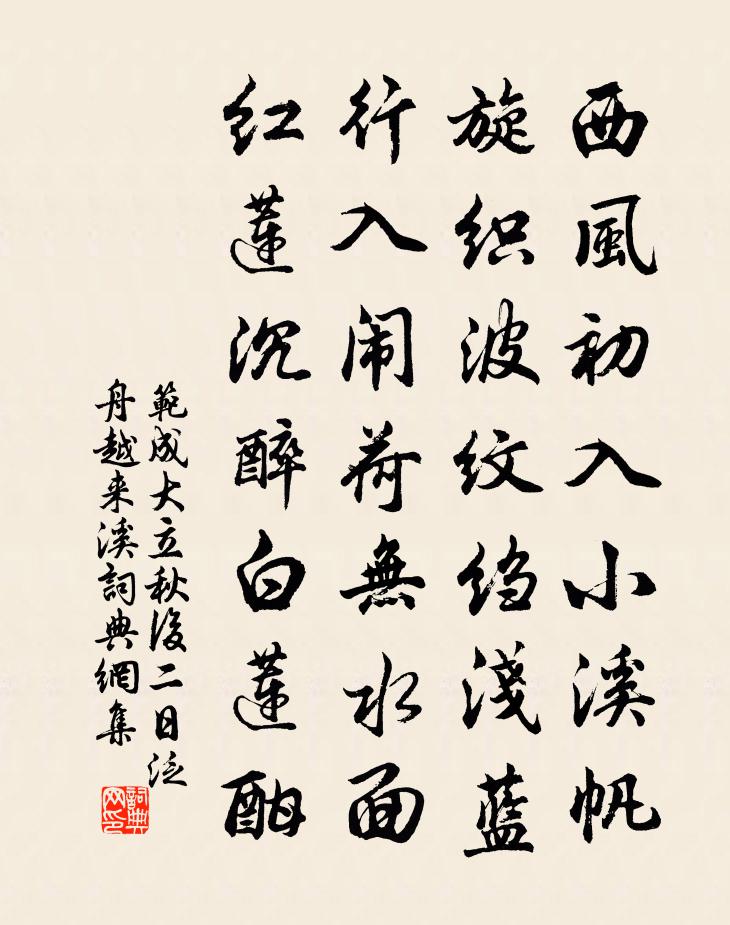 西風初入小溪帆
旋织波纹绉淺藍
行入闹荷無水面
红蓮沉醉白蓮酣
範成大立秋後二日泛
舟越来溪詞典網集
詞典
网印